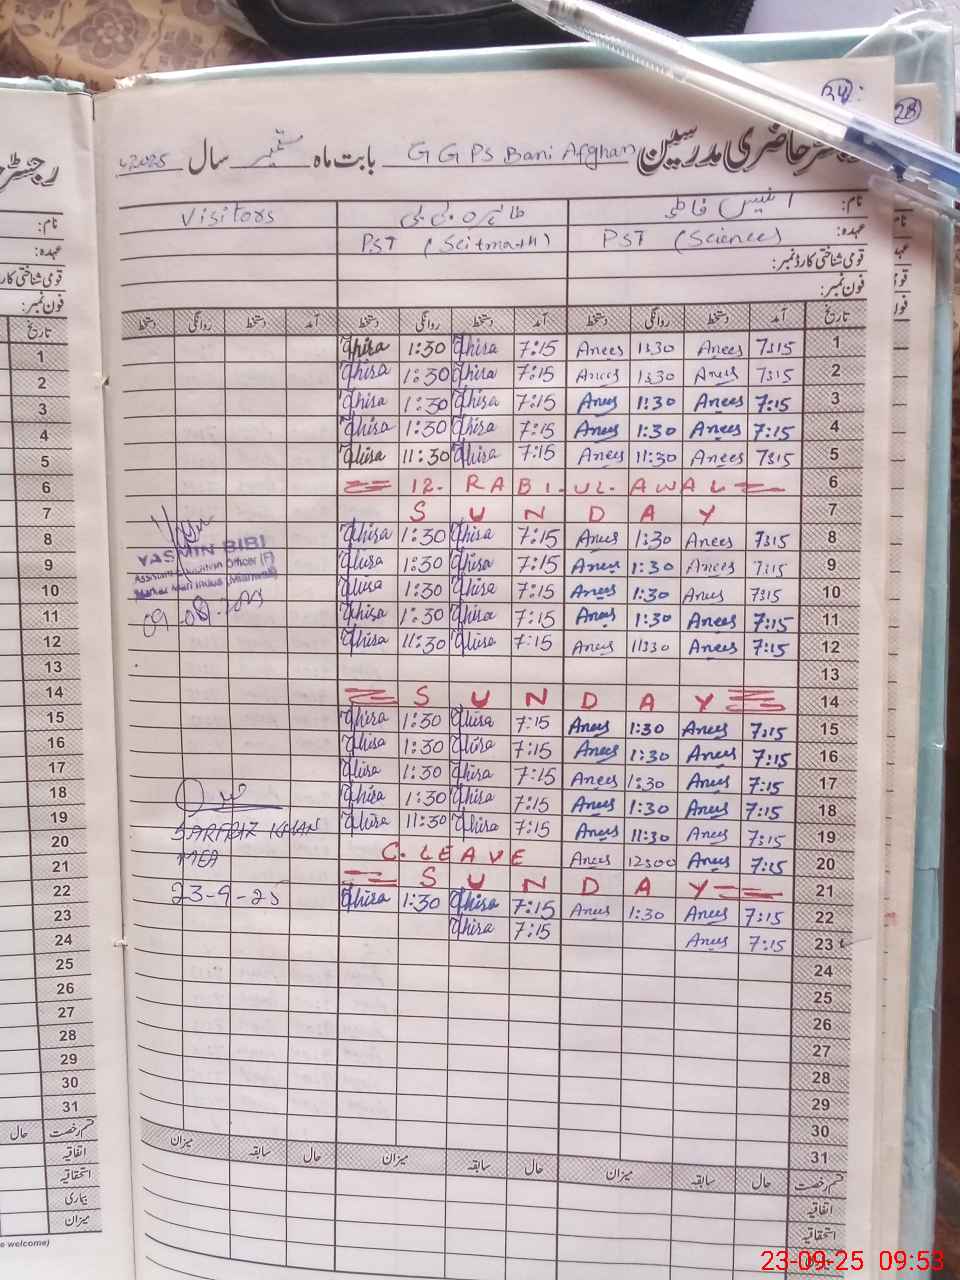 34
28
رجسٹر حاضری مدرسین G G PS Bani Afghan بابت ماہ ستمبر سال 2025
نام: انیس فاطمہ طائرہ بی بی Visitors
عہدہ: PST (Science) PST (Sci+math)
قومی شناختی کارڈ نمبر:
فون نمبر:
تاریخ آمد دستخط روانگی دستخط آمد دستخط روانگی دستخط آمد دستخط روانگی دستخط
1 7:15 Anees 1:30 Anees 7:15 1:30
2 7:15 Anees 1:30 Anees 7:15 1:30
3 7:15 Anees 1:30 Anees 7:15 1:30
4 7:15 Anees 1:30 Anees 7:15 1:30
5 7:15 Anees 11:30 Anees 7:15 11:30
6 12. RABI. UL. AWAL
7 SUNDAY
8 7:15 Anees 1:30 Anees 7:15 1:30
9 7:15 Anees 1:30 Anees 7:15 1:30
10 7:15 Anees 1:30 Anees 7:15 1:30
11 7:15 Anees 1:30 Anees 7:15 1:30
12 7:15 Anees 11:30 Anees 7:15 11:30
13
14 SUNDAY
15 7:15 Anees 1:30 Anees 7:15 1:30
16 7:15 Anees 1:30 Anees 7:15 1:30
17 7:15 Anees 1:30 Anees 7:15 1:30
18 7:15 Anees 1:30 Anees 7:15 1:30
19 7:15 Anees 11:30 Anees 7:15 11:30
20 7:15 Anees 12:00 Anees C. LEAVE
21 SUNDAY
22 7:15 Anees 1:30 Anees 7:15 1:30
23 7:15 Anees 7:15
24
25
26
27
28
29
30
31
YASMIN BIBI
Assistant Education Officer (F)
SARFRAZ KHAN
MEA
23-9-25
قسم رخصت حال سابقہ میزان حال سابقہ میزان حال سابقہ میزان
اتفاقیہ
استحقاقیہ
نام:
عہدہ:
قومی شناختی کارڈ
فون نمبر:
تاریخ
1
2
3
4
5
6
7
8
9
10
11
12
13
14
15
16
17
18
19
20
21
22
23
24
25
26
27
28
29
30
31
قسم رخصت حال
اتفاقیہ
استحقاقیہ
بیماری
میزان
e welcome)
23-09-25 09:53